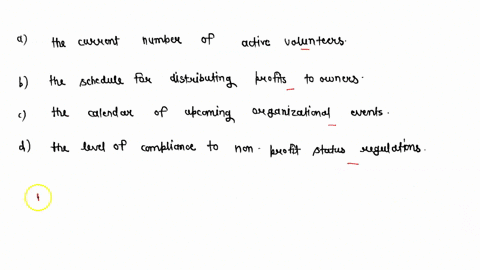 a) the current number of active volunteers.
b) the schedule for distributing profits to owners.
c) the calendar of upcoming organizational events.
d) the level of compliance to non-profit status regulations.